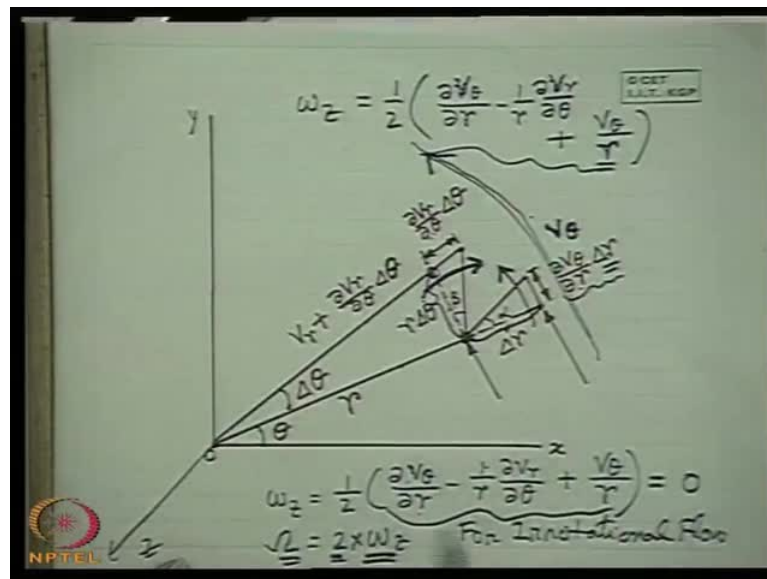 ω_z = 1/2 ( ∂V_θ/∂r - 1/r ∂V_r/∂θ
+ V_θ/r )
G CET
I.I.T. KGP
y
∂V_r/∂θ Δθ
V_θ
V_r + ∂V_r/∂θ Δθ
rΔθ
β
α
∂V_θ/∂r Δr
Δr
Δθ
r
θ
o
x
z
ω_z = 1/2 ( ∂V_θ/∂r - 1/r ∂V_r/∂θ + V_θ/r ) = 0
Ω = 2 × ω_z For Irrotational Flow
NPTEL